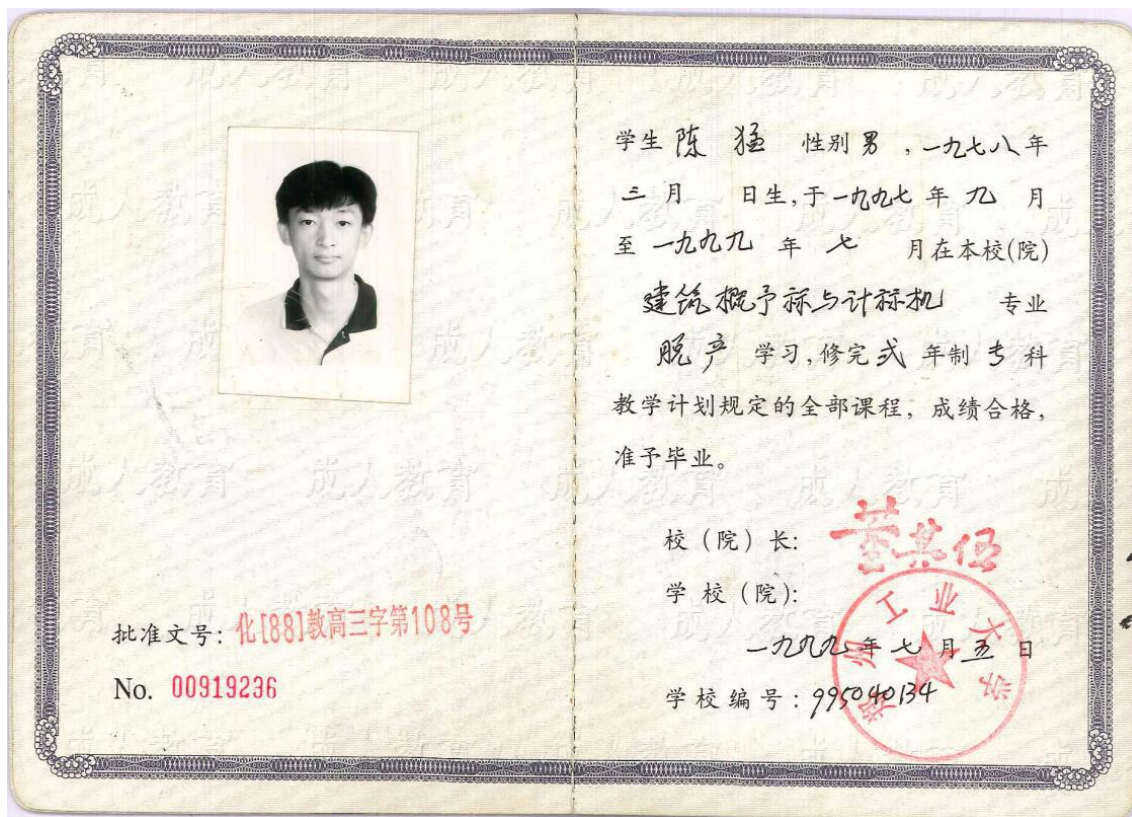 批准文号: 化[88]教高三字第108号
No. 00919236
学生 陈 猛 性别 男 , 一九七八年
三 月 日生, 于一九九七 年 九 月
至 一九九九 年 七 月在本校(院)
建筑概予祘与计祘机 专业
脱产 学习, 修完 弍 年制 专 科
教学计划规定的全部课程, 成绩合格,
准予毕业。
校 (院) 长: 董其伍
学 校 (院):
郑州工业大学
一九九九 年 七 月 五 日
学校编号: 995040134
成人教育